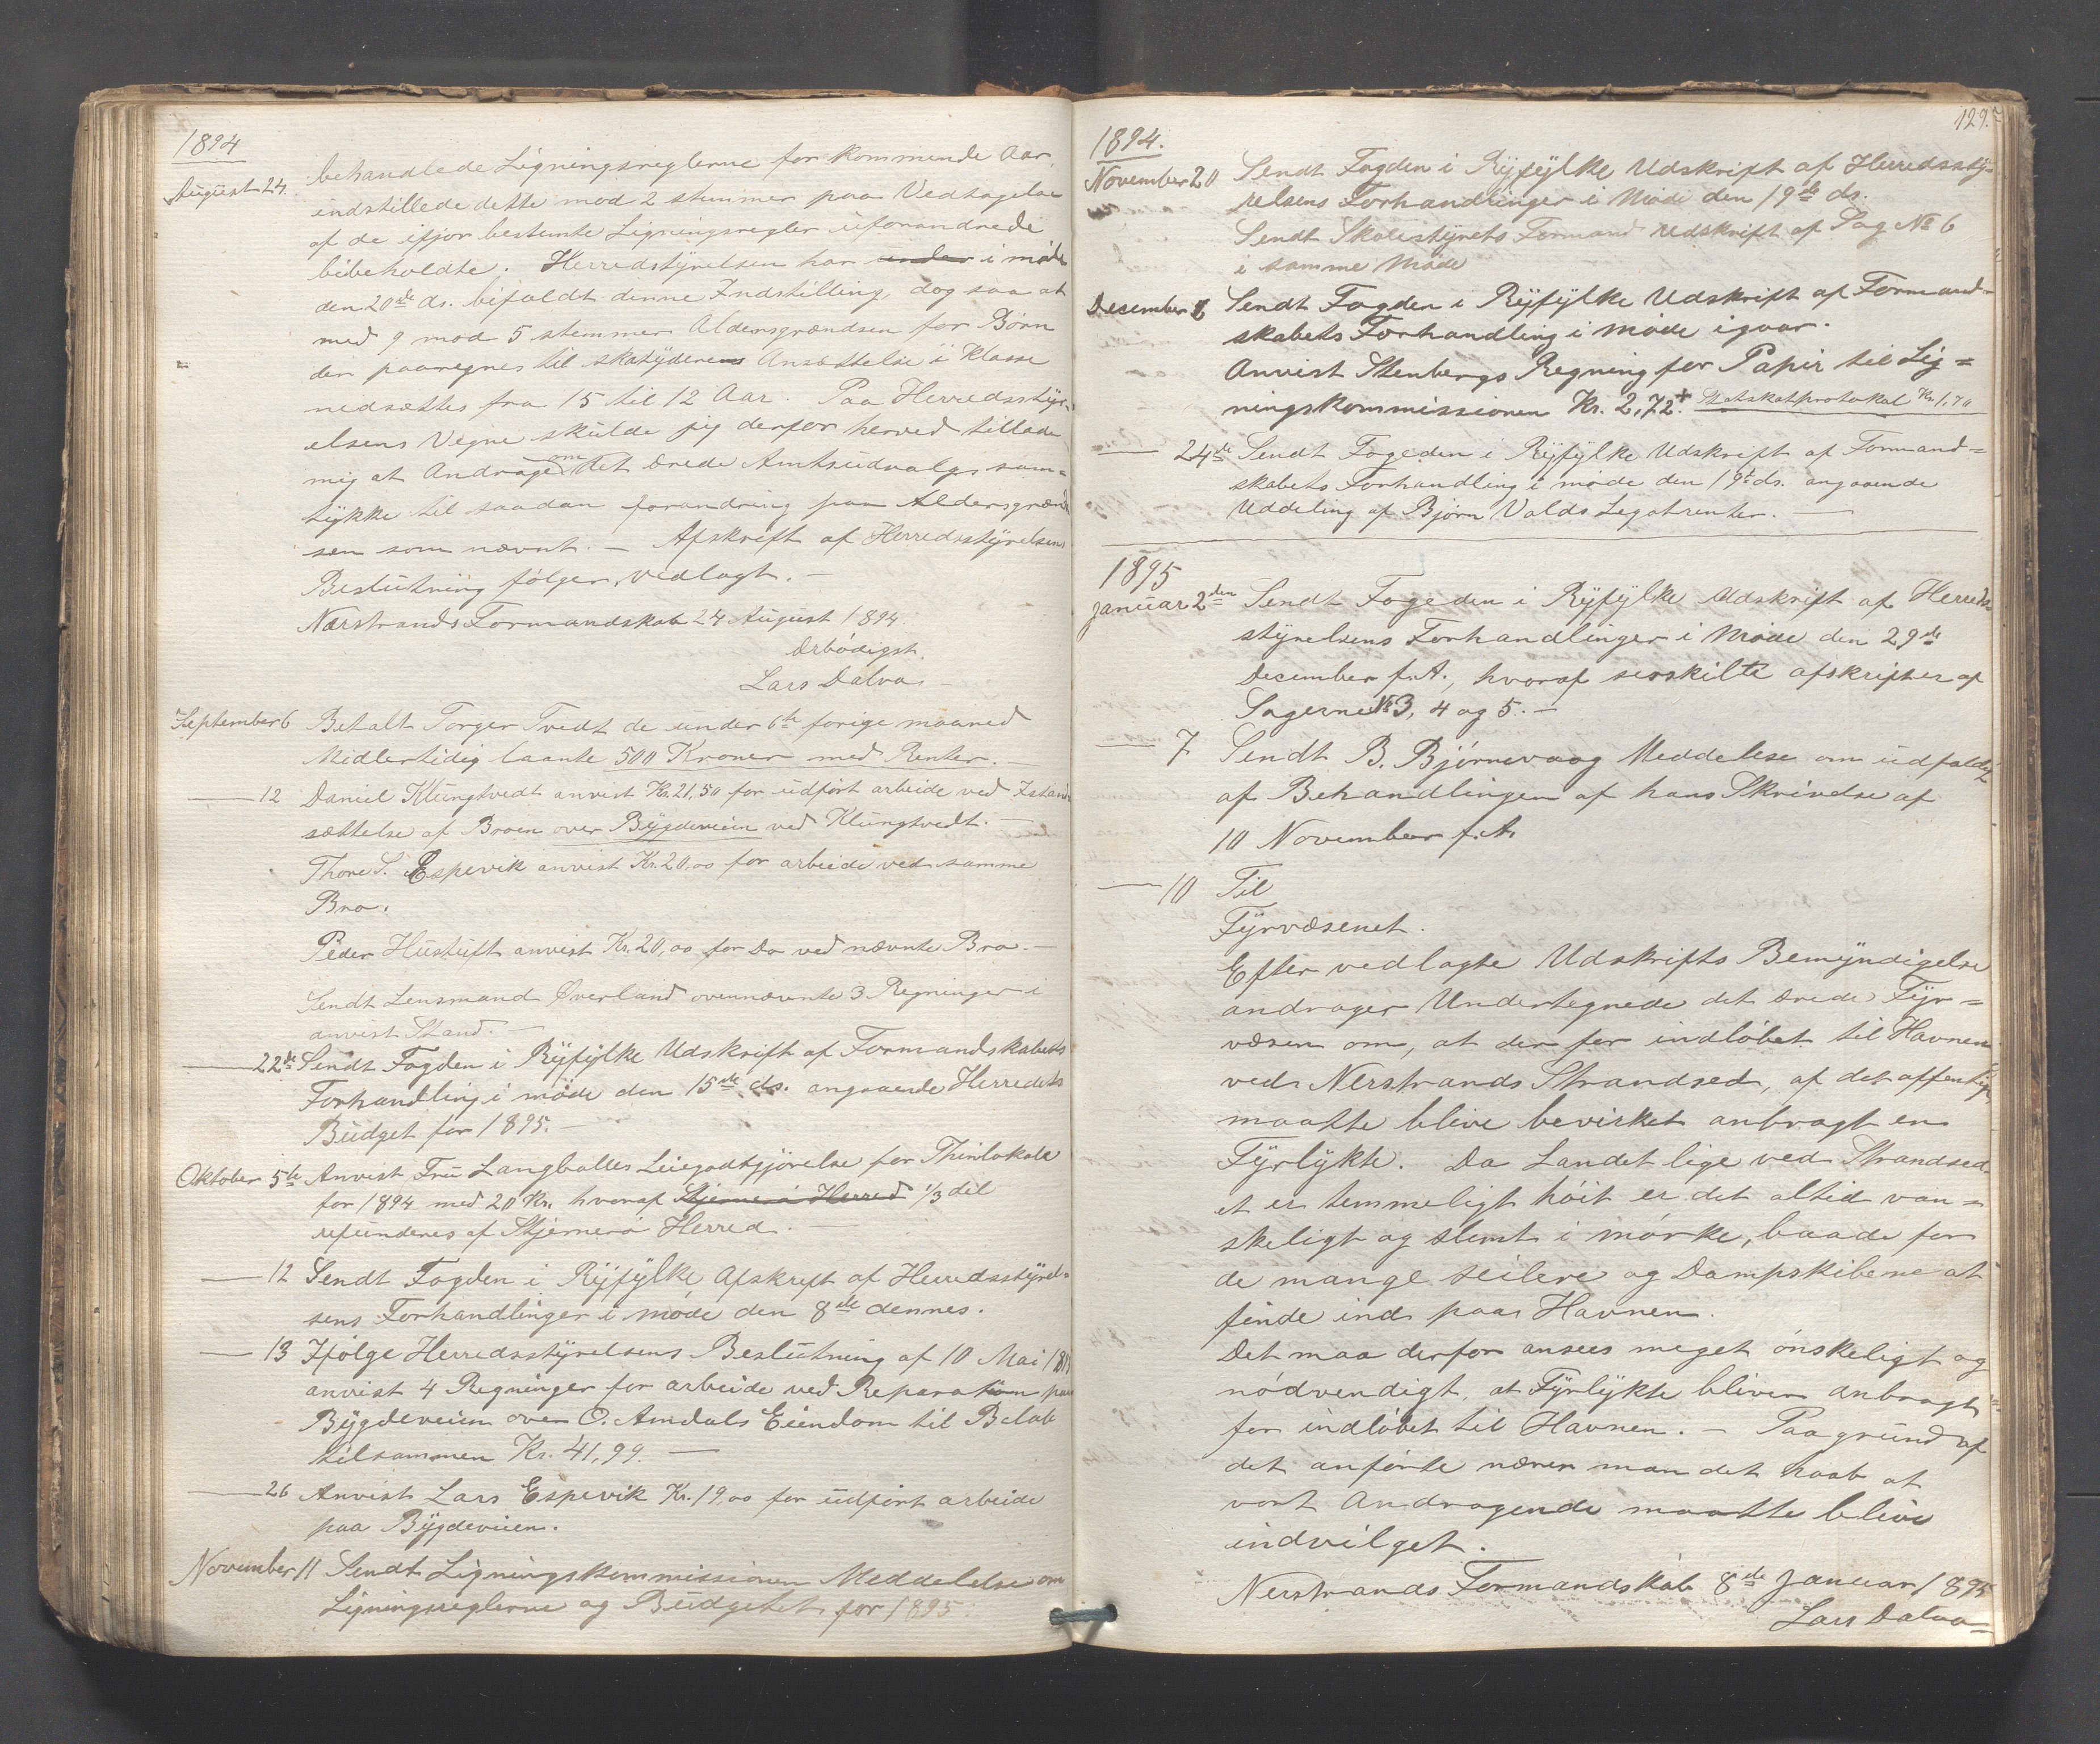 1894
August 24. behandlede Ligningsreglerne for kommende Aar,
indstillede dette mod 2 stemmer paa Vedtagelse
af de ifjor bestemte Ligningsregler uforandrede
bibeholdte. Herredstyrelsen har under i møde
den 20de ds. bifaldt denne Indstilling, dog saa at
med 9 mod 5 stemmer Aldersgrændsen for Børn
der paaregnes til skatyderens Ansættelse i Klasse
nedsættes fra 15 til 12 Aar. Paa Herredssty-
elsens Vegne skulde jeg derfor herved tillade
mig at Andrage om det ærede Amtsudvalgs sam=
tykke til saadan forandring paa Aldersgrænd
sen som nævnt. — Afskrift af Herredsstyrelsens
Beslutning følger vedlagt. —
Nærstrands Formandskab 24 August 1894.
Ærbødigst.
Lars Dalva
September 6 Betalt Torger Tvedt de under 6te forige maaned
Midlertidig laante 500 Kroner med Renter. —
— 12 Daniel Klungtvedt anvist Kr. 21,50 for udført arbeide ved Istand
sættelse af Broen over Bygdeveien ved Klungtvedt. —
Thore S. Espevik anvist Kr. 20,00 for arbeide ved samme
Bro.
Peder Hustuft anvist Kr. 20,00 for Do ved nævnte Bro. —
Sendt Lensmand Øverland overnævnte 3 Regninger i
anvist Stand. —
— 22de Sendt Fogden i Ryfylke Udskrift af Formandskabets
Forhandling i møde den 15de ds. angaaende Herredets
Budget for 1895. —
Oktober 5te Anvist Fru Langballes Leiegodtgjørelse for Thinlokale
for 1894 med 20 Kr. hvoraf Stjernerø Herred 1/3 del
refunderes af Stjernerø Herred. —
— 12 Sendt Fogden i Ryfylke Afskrift af Herredsstyrel-
sens Forhandlinger i møde den 8de dennes.
— 13 Ifølge Herredsstyrelsens Beslutning af 10 Mai 189
anvist 4 Regninger for arbeide ved Reparation paa
Bygdeveien over O. Amdals Eiendom til Beløb
tilsammen Kr. 41,99. —
— 26 Anvist Lars Espevik Kr. 19,00 for udført arbeide
paa Bygdeveien.
November 11 Sendt Ligningskommissionen Meddelelse om
Ligningsreglerne og Budgetet for 1895
129.
1894.
November 20 Sendt Fogden i Ryfylke Udskrift af Herredssty-
relsens Forhandlinger i Møde den 19de ds.
Sendt Skolestyrets Formand Udskrift af Sag № 6
i samme Møde
December Sendt Fogden i Ryfylke Udskrift af Formand-
skabets Forhandling i møde igaar.
Anvist Stenbergs Regning for Papir til Lig=
ningskommissionen Kr. 2,72.+ Statskatprotokol Kr. 1,70
— 24de Sendt Fogeden i Ryfylke Udskrift af Formand=
skabets Forhandling i møde den 19de ds. angaaende
Uddeling af Bjørn Valds Legatrenter. —
1895
Januar 2den Sendt Fogeden i Ryfylke Udskrift af Herreds
styrelsens Forhandlinger i Møde den 29de
December f.A., hvoraf særskilte afskrifter af
Sagerne № 3, 4 og 5. —
— 7 Sendt B. Bjørnevaag Meddelese om udfaldet
af Behandlingen af hans Skrivelse af
10 November f.A.
— 10 Til
Fyrvæsenet.
Efter vedlagte Udskrifts Bemyndigelse
andrager Undertegnede det ærede Fyr=
væsen om, at der for indløbet til Havnen
ved Nerstrands Strandsed, af det offentlige
maatte blive bevirket anbragt en
Fyrlykte. Da Landet lige ved Strandsed
et er temmeligt høit er det altid van=
skeligt og slemt i mørke, baade for
de mange seilere og Dampskibene at
finde ind paa Havnen.
Det maa derfor ansees meget ønskeligt og
nødvendigt, at Fyrlykte bliver anbragt
for indløbet til Havnen. — Paa grund af
det anførte nærer man det haab at
vort Andragende maatte blive
indvilget.
Nerstrands Formandskab 8de Januar 1895
Lars Dalva